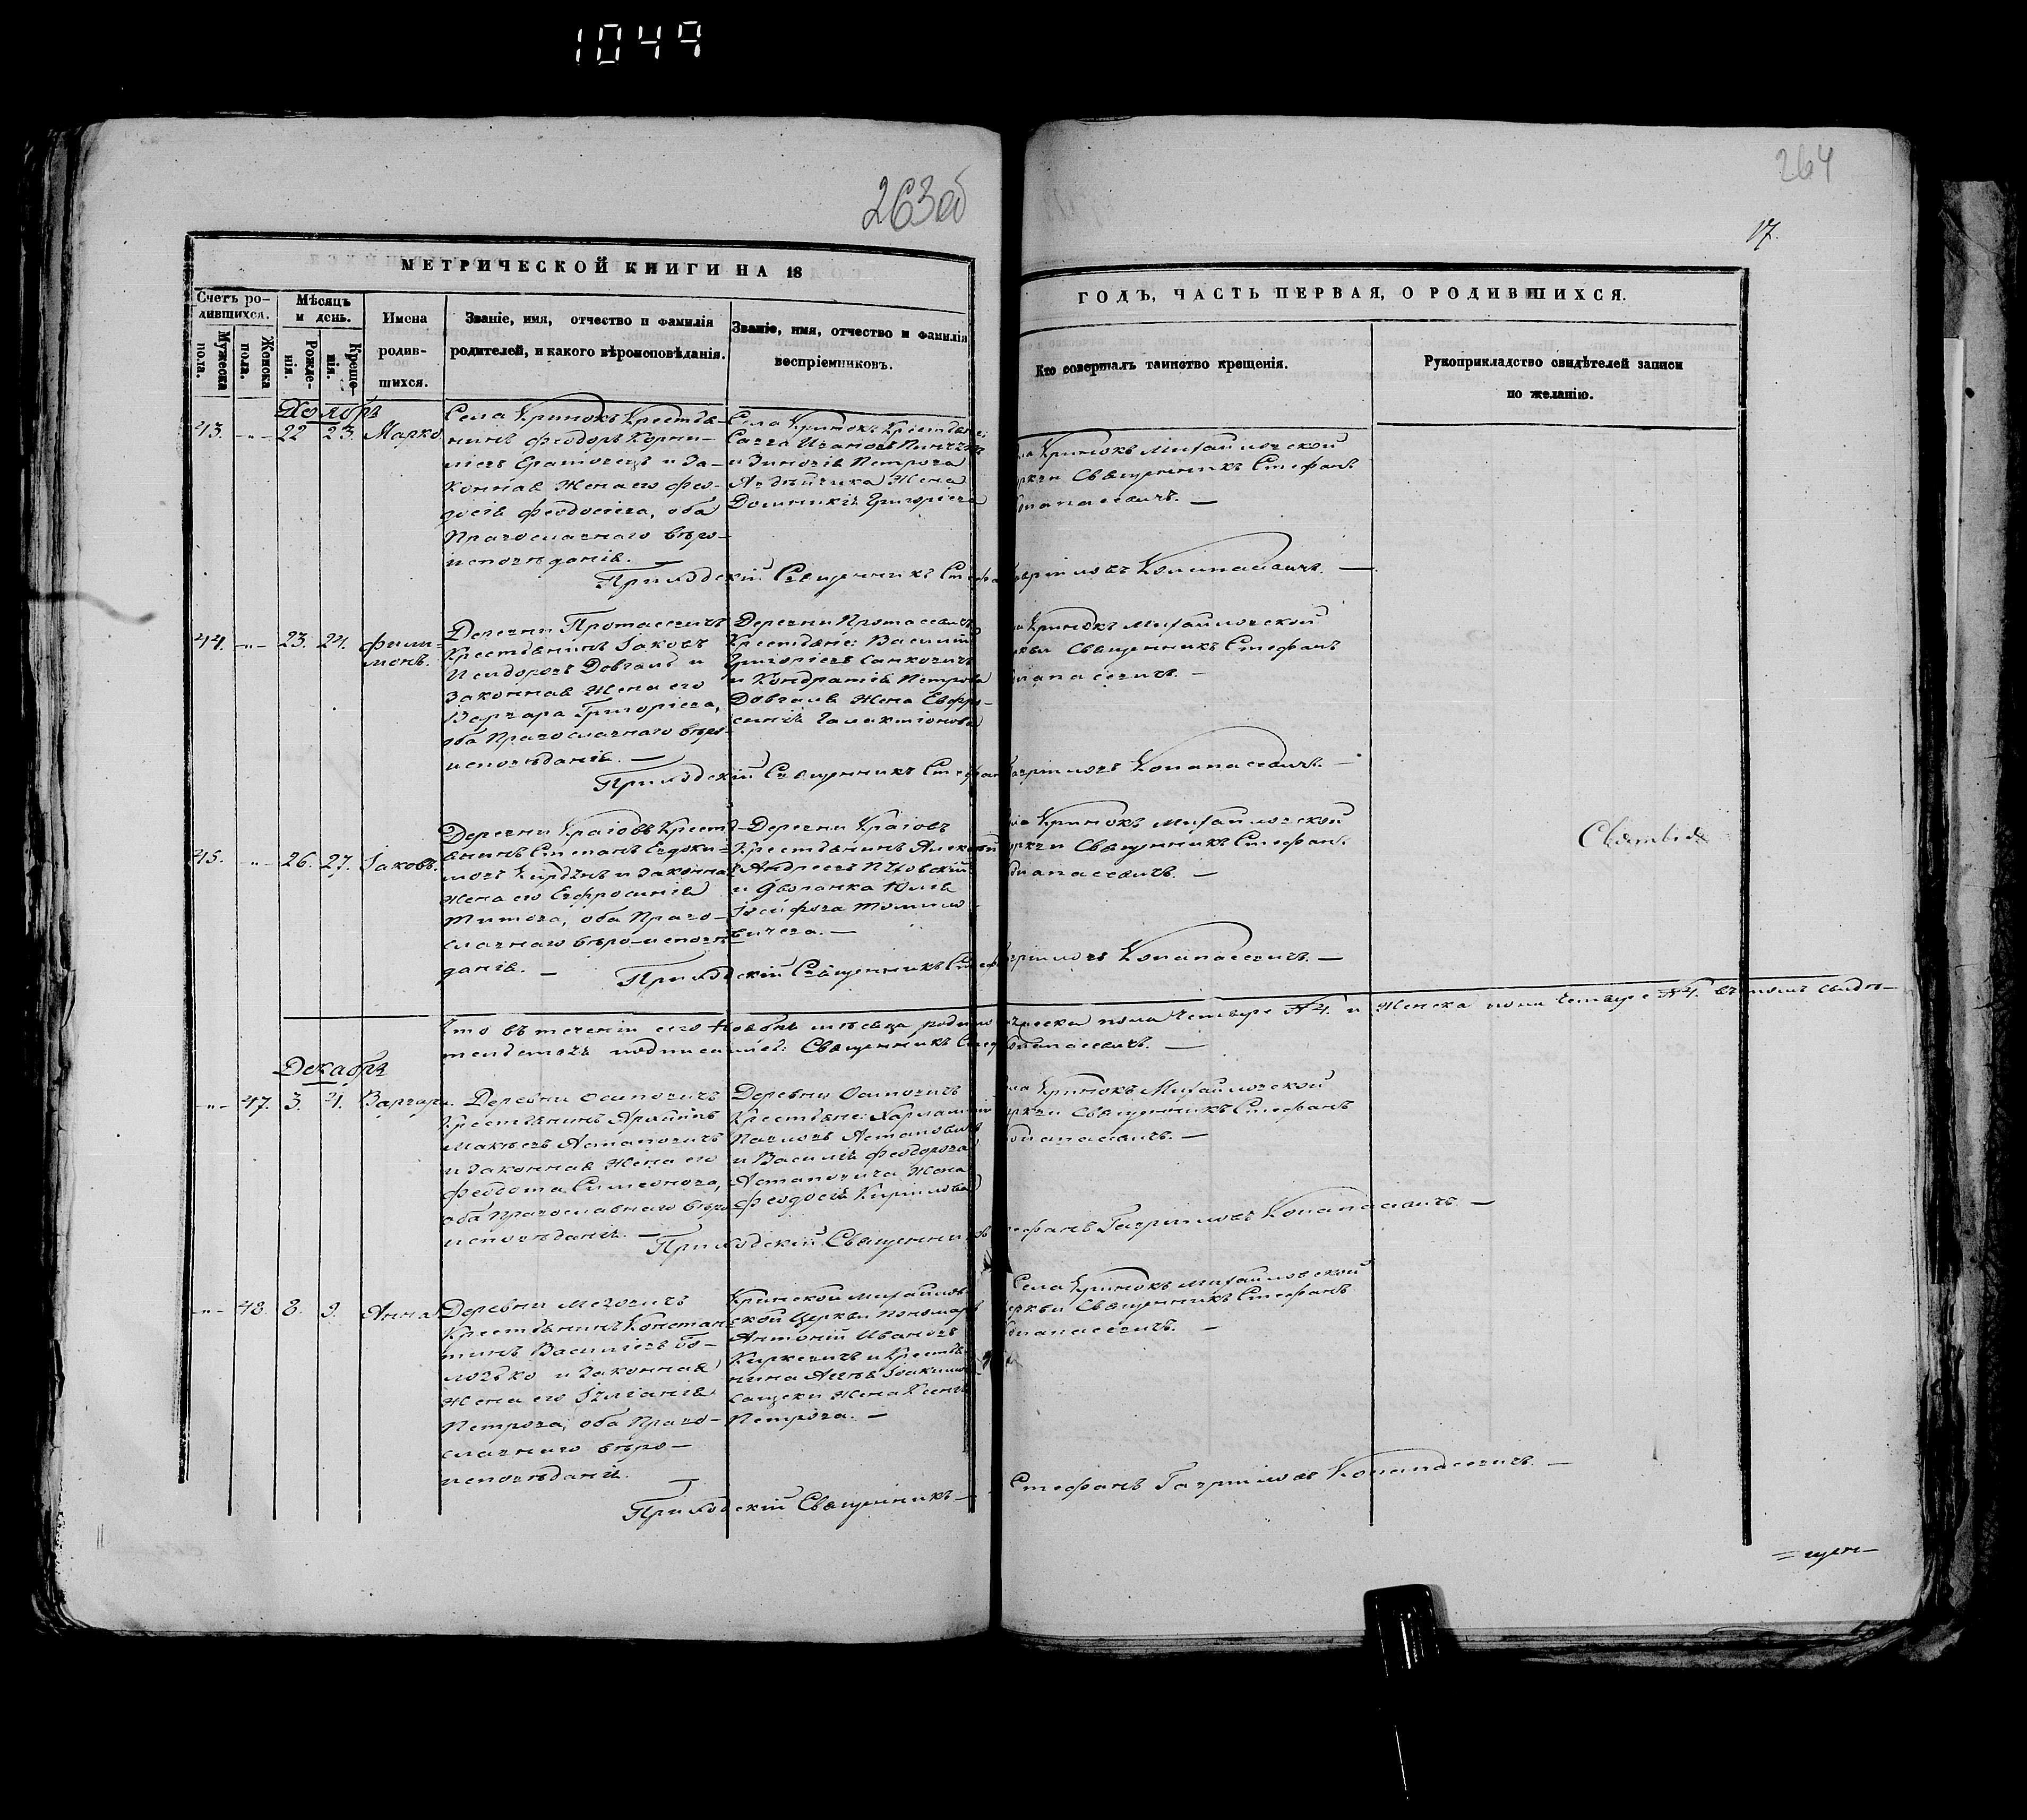 1049
263 об
264
17.
МЕТРИЧЕСКОЙ КНИГИ НА 18
ГОДЪ, ЧАСТЬ ПЕРВАЯ, О РОДИВШИХСЯ.
Счетъ ро-
дившихся.
Мужеска
пола.
Женска
пола.
Мѣсяцъ
и день.
Рожде-
нія.
Креще-
нія.
Имена
родив-
шихся.
Званіе, имя, отчество и фамилія
родителей, и какого вѣроисповѣданія.
Званіе, имя, отчество и фамилія
воспріемниковъ.
Кто совершалъ таинство крещенія.
Рукоприкладство свидѣтелей записи
по желанію.
Ноябрь
43. -„- 22 23. Марко
Села Кринокъ Крестья-
нинъ Феодоръ Корни-
и За-
конная Жена его Фео-
досія Феодосіева, оба
Православнаго вѣро-
исповѣданія. —
Села Кринокъ Крестьяне:
Савва Ивановъ
и Зиновія Петрова
Жена
Григоріева
Села Кринокъ Михайловской
Церкви Священникъ Стефанъ
Конапасевичъ. —
Приходскій Священникъ Стефанъ Гавріиловъ Конапасевичъ. —
44. -„- 23. 24. Фили-
монъ.
Деревни Протасевичъ
Крестьянинъ Іаковъ
Исидоровъ Довгалъ и
Законная Жена его
Варвара Григоріева,
оба Православнаго вѣро-
исповѣданія. —
Деревни Протасевичъ
Крестьяне: Василій
Григоріевъ Санковичъ
и Кондратія Петрова
Довгаля Жена Евфро-
синія Галактіонова
Села Кринокъ Михайловской
Церкви Священникъ Стефанъ
Конапасевичъ. —
Приходскій Священникъ Стефанъ Гавріиловъ Конапасевичъ. —
45. -„- 26. 27. Іаковъ.
Деревни Краіовъ Кресть-
янинъ Стефанъ Евдоки-
мовъ и законная
Жена его Евфросинія
Титова, оба Право-
славнаго вѣро-исповѣ-
данія. —
Деревни Краіовъ
Крестьянинъ Алексѣй
Андреевъ
и Дворянка Юлія
Іосифова Томило-
вичева. —
Села Кринокъ Михайловской
Церкви Священникъ Стефанъ
Конапасевичъ. —
Приходскій Священникъ Стефанъ Гавріиловъ Конапасевичъ. —
Что въ теченіи сего Ноября мѣсяца родилось мужеска пола Четыре №4. и Женска пола Четыре №4. въ томъ свидѣ-
тельствуемъ подписаніемъ: Священникъ Стефанъ Конапасевичъ. —
Декабрь
-„- 47. 3. 4. Варвара.
Деревни Осиповичъ
Крестьянинъ
Астаповичъ
и законная Жена его
Феодота Симеонова,
оба Православнаго вѣро-
исповѣданія. —
Деревни Осиповичъ
Крестьяне: Харлампій
Павловъ Астаповичъ
и Василія Феодорова
Астаповича Жена
Феодосія Кирилова
Села Кринокъ Михайловской
Церкви Священникъ Стефанъ
Конапасевичъ. —
Приходскій Священникъ Стефанъ Гавріиловъ Конапасевичъ. —
-„- 48. 8. 9. Анна
Деревни
Крестьянинъ Констан-
тинъ Василіевъ Бо-
и законная
Жена его Іуліанія
Петрова, оба Право-
славнаго вѣро-
исповѣданія.
Кринской Михайлов-
ской Церкви Пономарь
Антоній Ивановъ
и Крестья-
нина
Жена Ксенія
Петрова. —
Села Кринокъ Михайловской
Церкви Священникъ Стефанъ
Конапасевичъ. —
Приходскій Священникъ — Стефанъ Гавріиловъ Конапасевичъ. —